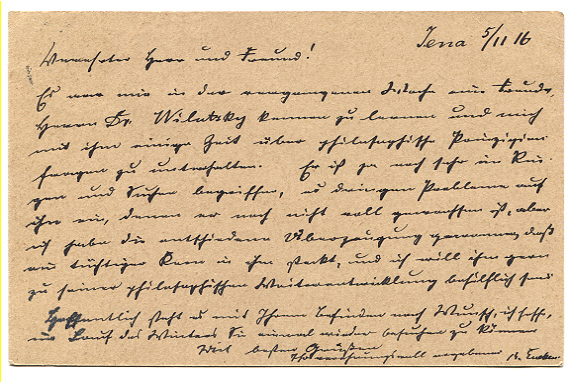 Jena 5/11 16
Verehrter Herr und Freund!
Es war mir in der vergangenen Woche eine Freude,
Herrn Dr. Wilutzky kennen zu lernen und mich
mit ihm einige Zeit über philosophische Prinzipien
fragen zu unterhalten. Er ist ja noch sehr im Rin-
gen und Suchen begriffen, es dringen Probleme auf
ihn ein, denen er noch nicht voll gewachsen ist, aber
ich habe die entschiedene Überzeugung gewonnen, daß
ein tüchtiger Kern in ihm steckt, und ich will ihm gern
zu seiner philosophischen Weiterentwicklung behilflich sein.
Hoffentlich steht es mit Ihrem Befinden nach Wunsch, ich hoffe,
im Lauf des Winters Sie einmal wieder besuchen zu können
Mit besten Grüßen
Ihr ergebener R. Eucken